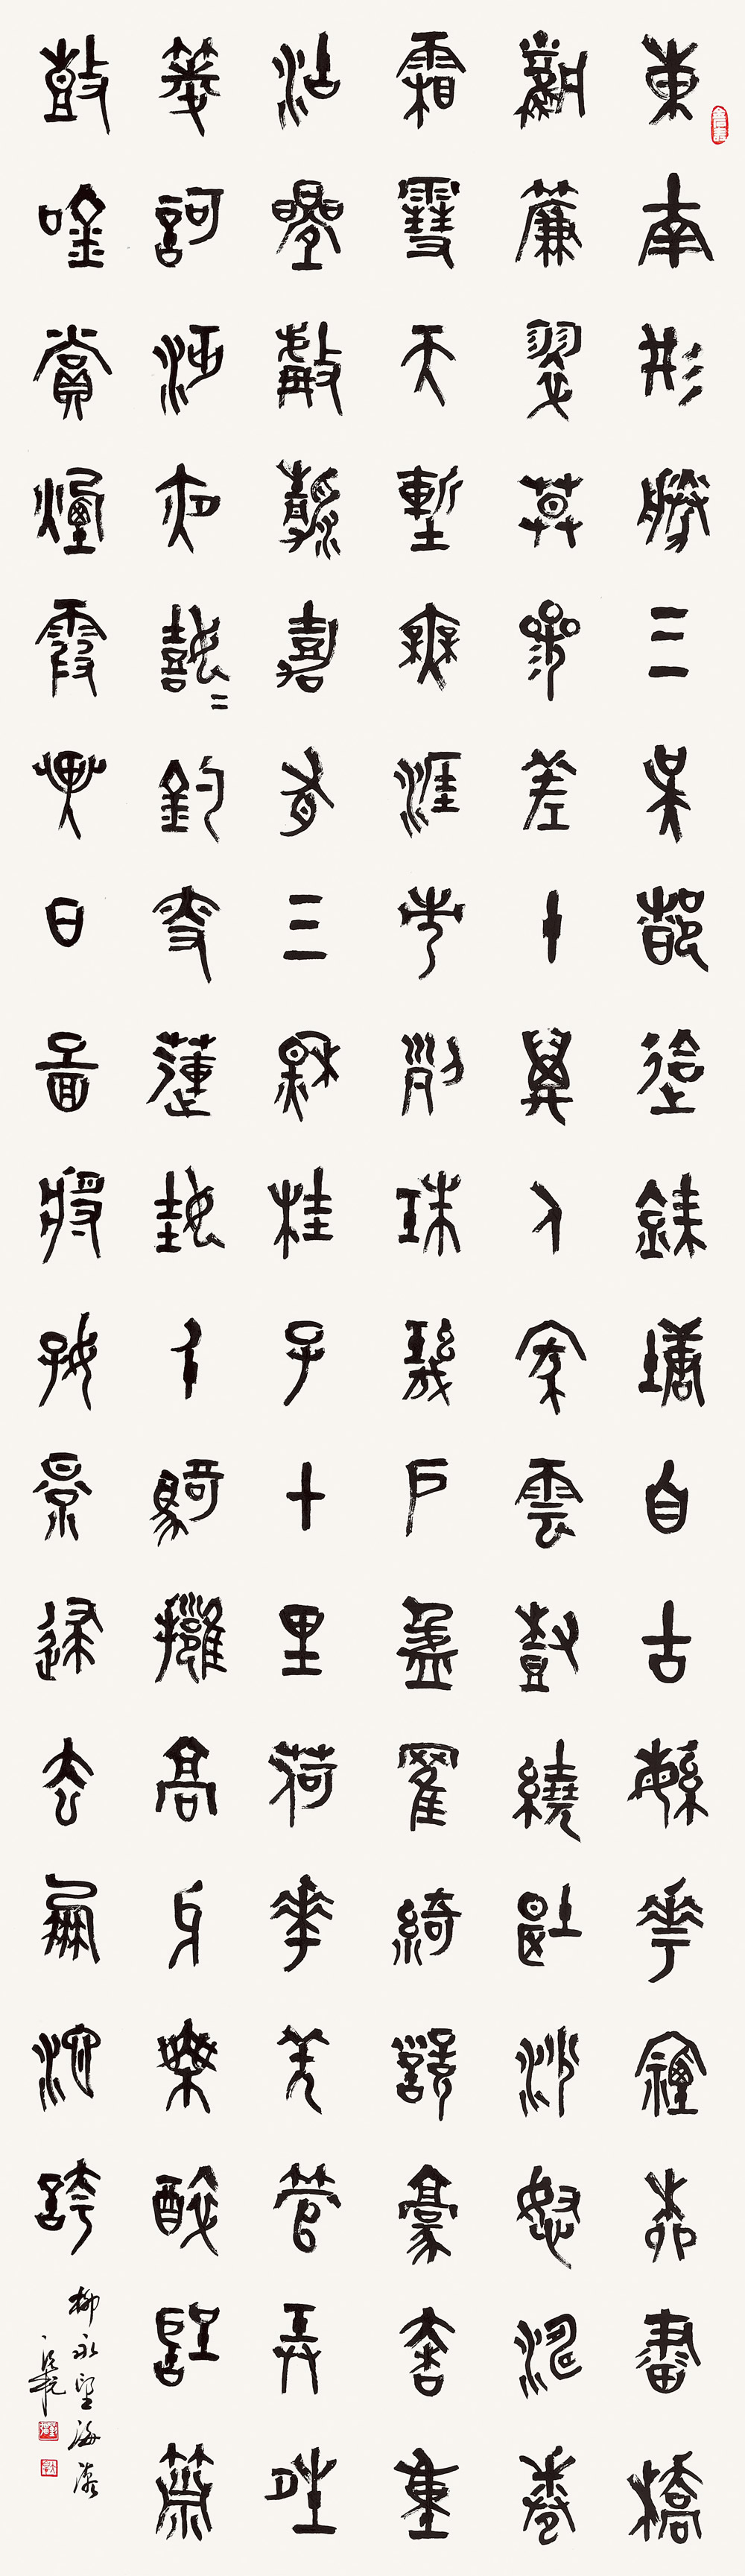 東南形勝三吳都會錢塘自古繁華煙柳畫橋
風簾翠幕參差十萬人家雲樹繞堤沙怒濤卷
霜雪天塹無涯市列珠璣戶盈羅綺競豪奢重
湖疊巘清嘉有三秋桂子十里荷花羌管弄晴
菱歌泛夜嬉〻釣叟蓮娃千騎擁高牙乘醉聽簫
鼓吟賞煙霞異日圖將好景歸去鳳池誇
柳永望海潮